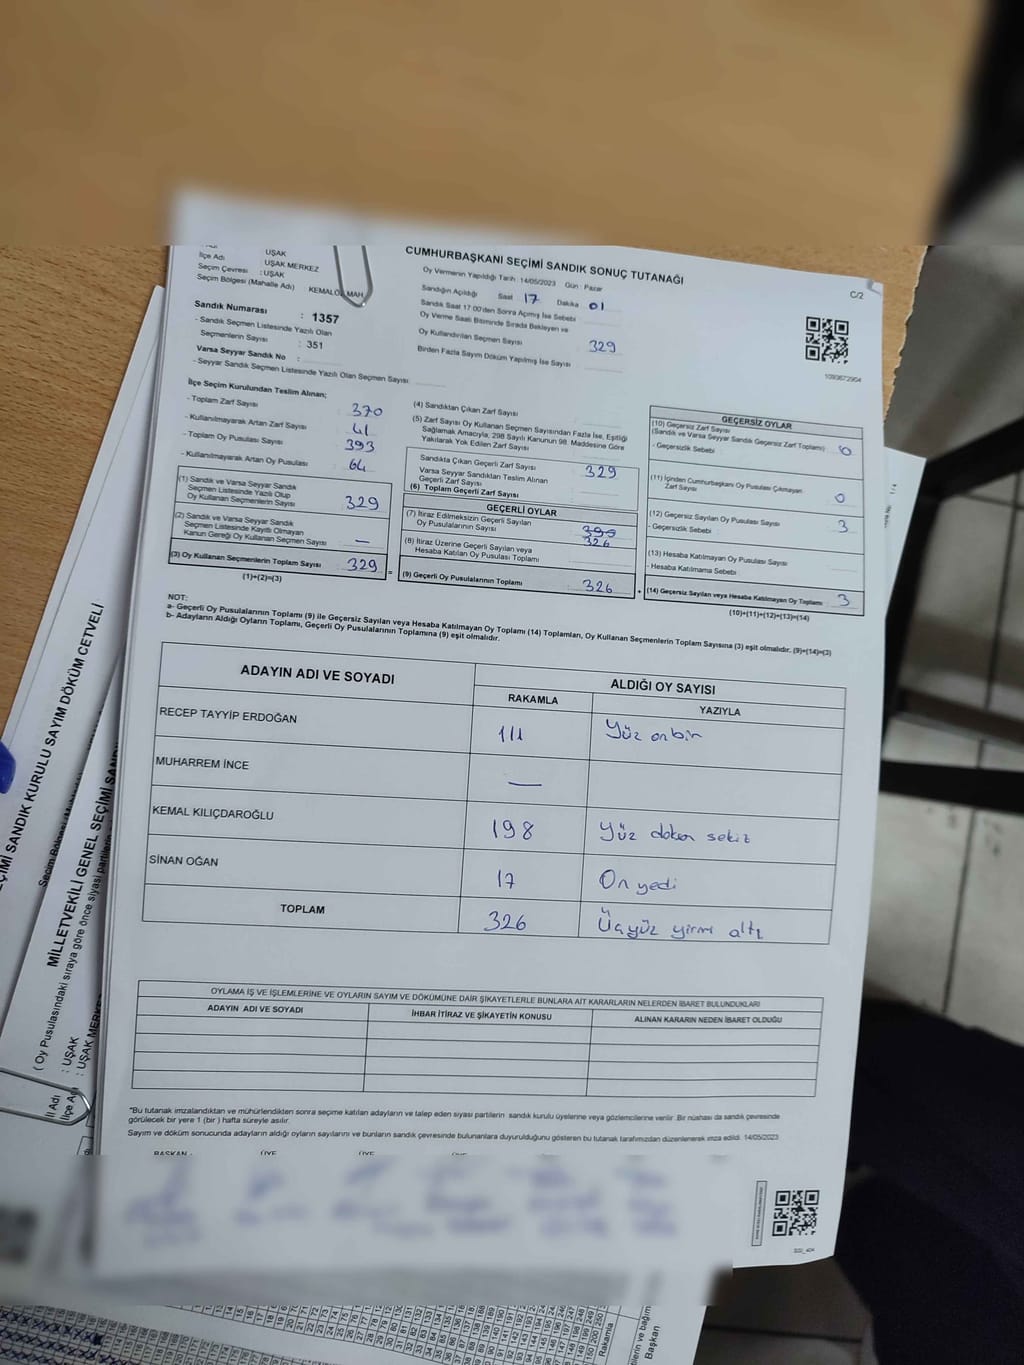 CUMHURBAŞKANI SEÇİMİ SANDIK SONUÇ TUTANAĞI
C/2
UŞAK
İlçe Adı : UŞAK MERKEZ
Seçim Çevresi : UŞAK
Seçim Bölgesi (Mahalle Adı) : KEMALÖZ MAH
Sandık Numarası : 1357
- Sandık Seçmen Listesinde Yazılı Olan
Seçmenlerin Sayısı : 351
Varsa Seyyar Sandık No :
- Seyyar Sandık Seçmen Listesinde Yazılı Olan Seçmen Sayısı
Oy Vermenin Yapıldığı Tarih :14/05/2023 Gün : Pazar
Sandığın Açıldığı Saat 17 Dakika 01
Sandık Saat 17:00'den Sonra Açımış İse Sebebi
Oy Verme Saati Bitiminde Sırada Bekleyen ve
Oy Kullandırılan Seçmen Sayısı 329
Birden Fazla Sayım Döküm Yapılmış İse Sayısı
1093672904
İlçe Seçim Kurulundan Teslim Alınan;
- Toplam Zarf Sayısı 370
- Kullanılmayarak Artan Zarf Sayısı 41
- Toplam Oy Pusulası Sayısı 393
- Kullanılmayarak Artan Oy Pusulası 64
(1) Sandık ve Varsa Seyyar Sandık
Seçmen Listesinde Yazılı Olup
Oy Kullanan Seçmenlerin Sayısı 329
(2) Sandık ve Varsa Seyyar Sandık
Seçmen Listesinde Kayıtlı Olmayan
Kanun Gereği Oy Kullanan Seçmen Sayısı —
(3) Oy Kullanan Seçmenlerin Toplam Sayısı 329
(1)+(2)=(3)
(4) Sandıktan Çıkan Zarf Sayısı
(5) Zarf Sayısı Oy Kullanan Seçmen Sayısından Fazla İse, Eşitliği
Sağlamak Amacıyla, 298 Sayılı Kanunun 98. Maddesine Göre
Yakılarak Yok Edilen Zarf Sayısı
Sandıkta Çıkan Geçerli Zarf Sayısı 329
Varsa Seyyar Sandıktan Teslim Alınan
Geçerli Zarf Sayısı
(6) Toplam Geçerli Zarf Sayısı
GEÇERLİ OYLAR
(7) İtiraz Edilmeksizin Geçerli Sayılan
Oy Pusulalarının Sayısı 326
(8) İtiraz Üzerine Geçerli Sayılan veya
Hesaba Katılan Oy Pusulası Toplamı
(9) Geçerli Oy Pusulalarının Toplamı : 326
GEÇERSİZ OYLAR
(10) Geçersiz Zarf Sayısı
(Sandık ve Varsa Seyyar Sandık Geçersiz Zarf Toplamı) : 0
- Geçersizlik Sebebi
(11) İçinden Cumhurbaşkanı Oy Pusulası Çıkmayan
Zarf Sayısı 0
(12) Geçersiz Sayılan Oy Pusulası Sayısı 3
- Geçersizlik Sebebi
(13) Hesaba Katılmayan Oy Pusulası Sayısı
- Hesaba Katılmama Sebebi
(14) Geçersiz Sayılan veya Hesaba Katılmayan Oy Toplamı : 3
(10)+(11)+(12)+(13)=(14)
NOT:
a- Geçerli Oy Pusulalarının Toplamı (9) ile Geçersiz Sayılan veya Hesaba Katılmayan Oy Toplamı (14) Toplamları, Oy Kullanan Seçmenlerin Toplam Sayısına (3) eşit olmalıdır. (9)+(14)=(3)
b- Adayların Aldığı Oyların Toplamı, Geçerli Oy Pusulalarının Toplamına (9) eşit olmalıdır.
ADAYIN ADI VE SOYADI ALDIĞI OY SAYISI
RAKAMLA YAZIYLA
RECEP TAYYİP ERDOĞAN 111 Yüz onbir
MUHARREM İNCE —
KEMAL KILIÇDAROĞLU 198 Yüz doksan sekiz
SİNAN OĞAN 17 On yedi
TOPLAM 326 Üçyüz yirmi altı
OYLAMA İŞ VE İŞLEMLERİNE VE OYLARIN SAYIM VE DÖKÜMÜNE DAİR ŞİKAYETLERLE BUNLARA AİT KARARLARIN NELERDEN İBARET BULUNDUKLARI
ADAYIN ADI VE SOYADI İHBAR İTİRAZ VE ŞİKAYETİN KONUSU ALINAN KARARIN NEDEN İBARET OLDUĞU
"Bu tutanak imzalandıktan ve mühürlendikten sonra seçime katılan adayların ve talep eden siyasi partilerin sandık kurulu üyelerine veya gözlemcilerine verilir .Bir nüshası da sandık çevresinde
görülecek bir yere 1 (bir ) hafta süreyle asılır.
Sayım ve döküm sonucunda adayların aldığı oyların sayılarını ve bunların sandık çevresinde bulunanlara duyurulduğunu gösteren bu tutanak tarafımızdan düzenlenerek imza edildi. 14/05/2023
BAŞKAN ÜYE ÜYE
SANDIK KURULU SAYIM DÖKÜM CETVELİ
MİLLETVEKİLİ GENEL SEÇİMİ
( Oy Pusulasındaki sıraya göre önce siyasi partilerin
İl Adı : UŞAK
İlçe Adı : UŞAK MERKEZ
Rakamla
Başkan